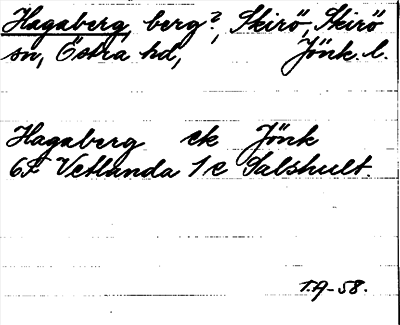 Hagaberg, berg?, Skirö, Skirö
sn, Östra hd, Jönk. l.
Hagaberg ek Jönk
6F Vetlanda 1c Salshult.
T.A-58.